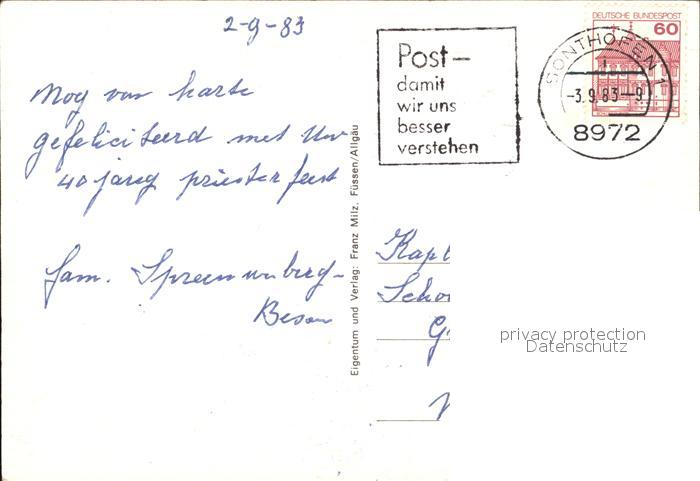 2-9-83
Nog van harte
gefeliciteerd met Uw
40 jarig priesterfeest
fam. Spreeuwenberg-
Post-
damit
wir uns
besser
verstehen
DEUTSCHE BUNDESPOST
60
SONTHOFEN 1
-3.9.83--9
8972
Eigentum und Verlag: Franz Milz, Füssen/Allgäu
Kapl
Scho
G
privacy protection
Datenschutz